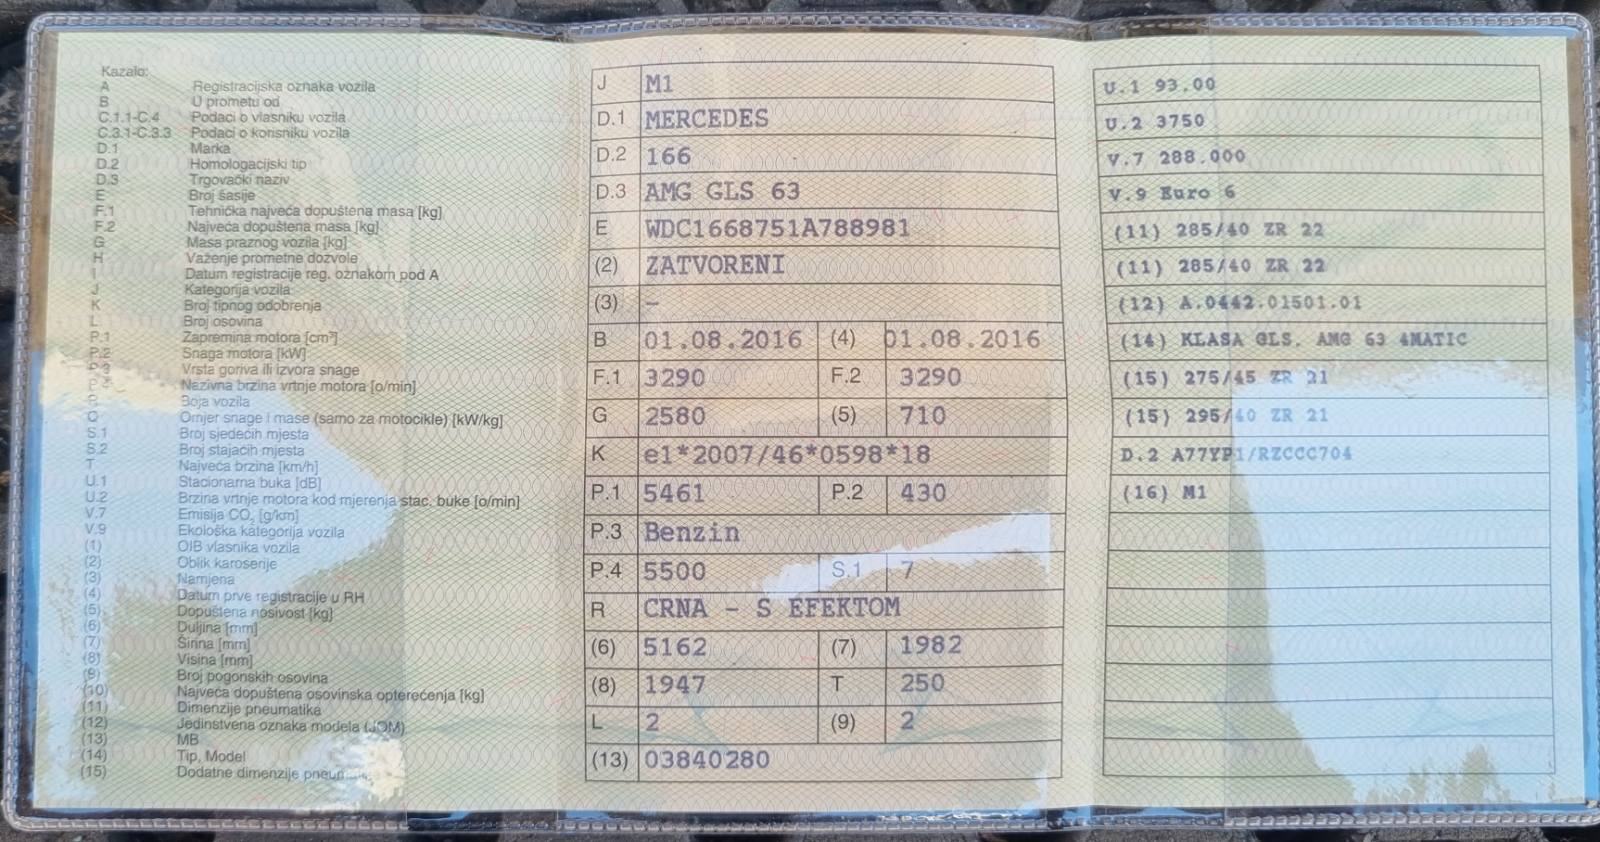 Kazalo:
A Registracijska oznaka vozila
B U prometu od
C.1.1-C.4 Podaci o vlasniku vozila
C.3.1-C.3.3 Podaci o korisniku vozila
D.1 Marka
D.2 Homologacijski tip
D.3 Trgovački naziv
E Broj šasije
F.1 Tehnička najveća dopuštena masa [kg]
F.2 Najveća dopuštena masa [kg]
G Masa praznog vozila [kg]
H Važenje prometne dozvole
I Datum registracije reg. oznakom pod A
J Kategorija vozila
K Broj tipnog odobrenja
L Broj osovina
P.1 Zapremina motora [cm³]
P.2 Snaga motora [kW]
P.3 Vrsta goriva ili izvora snage
P.4 Nazivna brzina vrtnje motora [o/min]
Boja vozila
Q Omjer snage i mase (samo za motocikle) [kW/kg]
S.1 Broj sjedećih mjesta
S.2 Broj stajaćih mjesta
T Najveća brzina [km/h]
U.1 Stacionarna buka [dB]
U.2 Brzina vrtnje motora kod mjerenja stac. buke [o/min]
V.7 Emisija CO₂ [g/km]
V.9 Ekološka kategorija vozila
(1) OIB vlasnika vozila
(2) Oblik karoserije
(3) Namjena
(4) Datum prve registracije u RH
(5) Dopuštena nosivost [kg]
(6) Duljina [mm]
(7) Širina [mm]
(8) Visina [mm]
(9) Broj pogonskih osovina
(10) Najveća dopuštena osovinska opterećenja [kg]
(11) Dimenzije pneumatika
(12) Jedinstvena oznaka modela (JOM)
(13) MB
(14) Tip, Model
(15) Dodatne dimenzije
J M1
D.1 MERCEDES
D.2 166
D.3 AMG GLS 63
E WDC1668751A788981
(2) ZATVORENI
(3) –
B 01.08.2016 (4) 01.08.2016
F.1 3290 F.2 3290
G 2580 (5) 710
K e1*2007/46*0598*18
P.1 5461 P.2 430
P.3 Benzin
P.4 5500 S.1 7
R CRNA – S EFEKTOM
(6) 5162 (7) 1982
(8) 1947 T 250
L 2 (9) 2
(13) 03840280
U.1 93.00
U.2 3750
V.7 288.000
V.9 Euro 6
(11) 285/40 ZR 22
(11) 285/40 ZR 22
(12) A.0442.01501.01
(14) KLASA GLS. AMG 63 4MATIC
(15) 275/45 ZR 21
(15) 295/40 ZR 21
D.2 A77YP1/RZCCC704
(16) M1